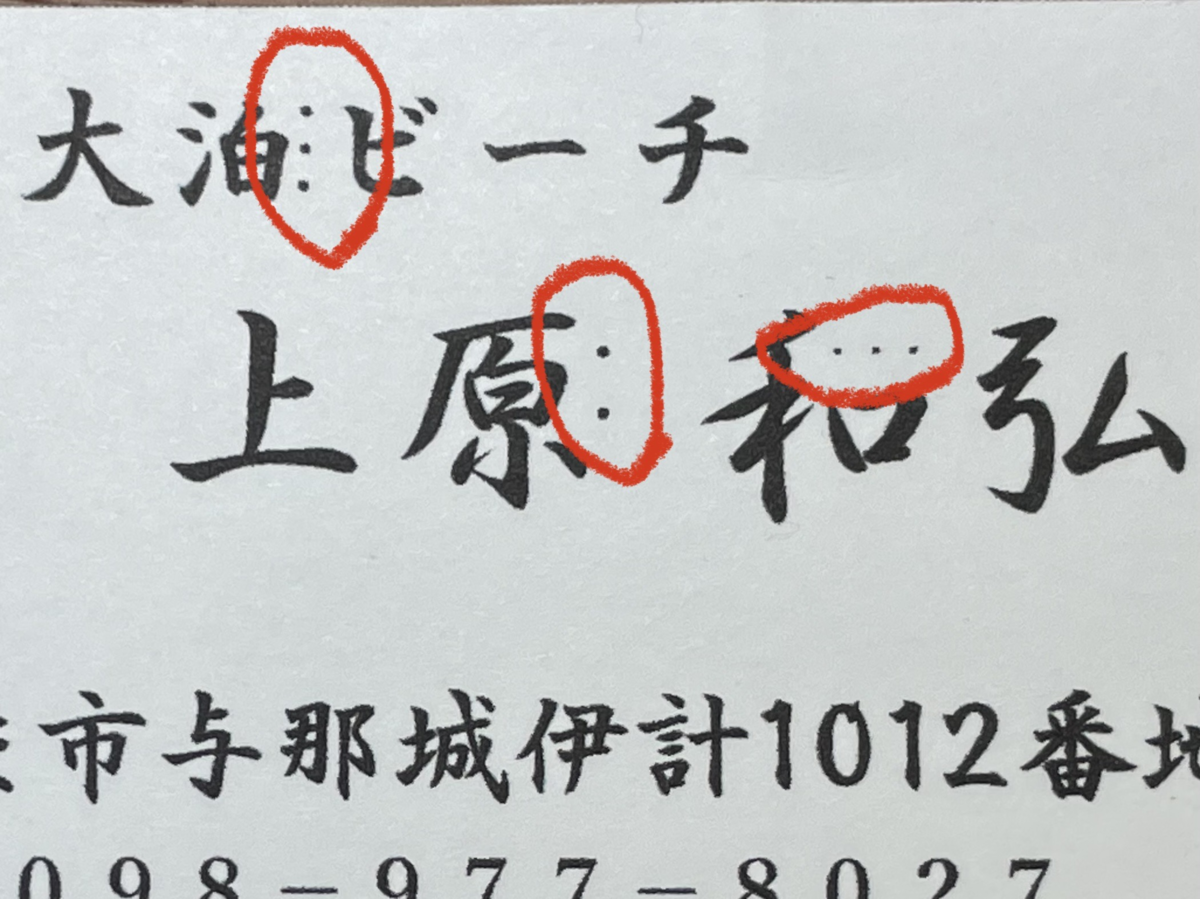 大泊⋮ビーチ
上原:和…弘
市与那城伊計1012番地
098-977-8027